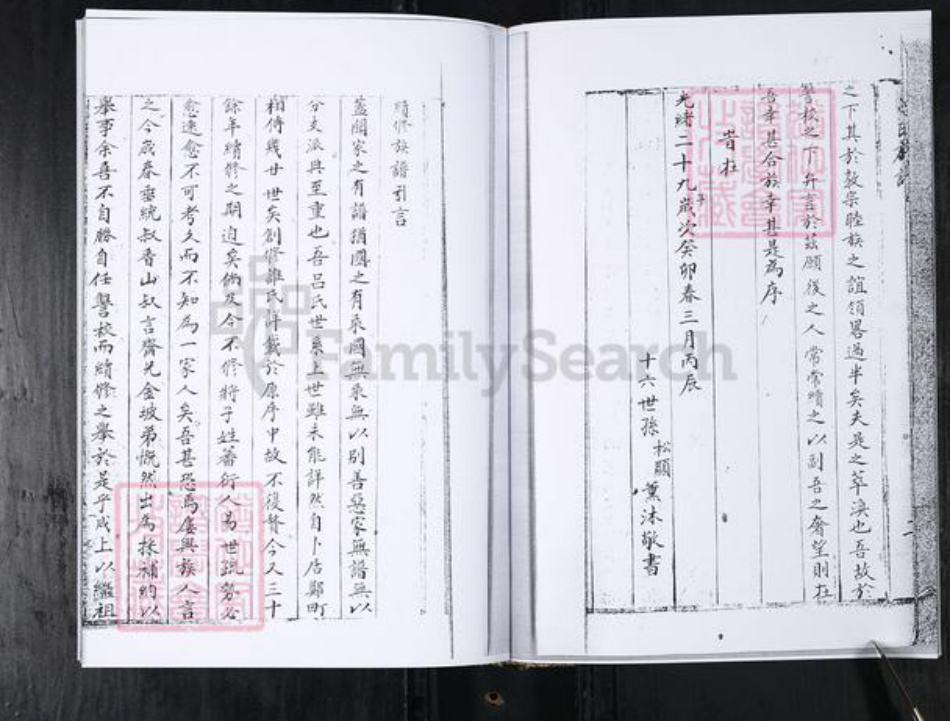 之下其於敦宗睦族之誼領畧過半矣夫是之萃渙也吾故於
讐校之下弁言於茲願後之人常常續之以副吾之奢望則在
吾幸甚合族幸甚是為序
旹在
光緒二十九年歲次癸卯春三月丙辰
十六世孫松顯薰沐敬書
續修族譜引言
蓋聞家之有譜猶國之有乘國無乘無以別善惡家無譜無以
分支派典至重也吾呂氏世系上世雖未能詳然自卜居鄭町
相傳幾廿世矣創修誰氏詳載於原序中故不復贅今又三十
餘年續修之期迫矣倘及今不修將子姓蕃衍人易世疏勢必
愈遠愈不可考久而不知為一家人矣吾甚恐焉屢與族人言
之今歲春垂統叔香山叔言齋兄金坡弟慨然出為採補約以
舉事余喜不自勝自任讐校而續修之舉於是乎成上以繼祖
FamilySearch